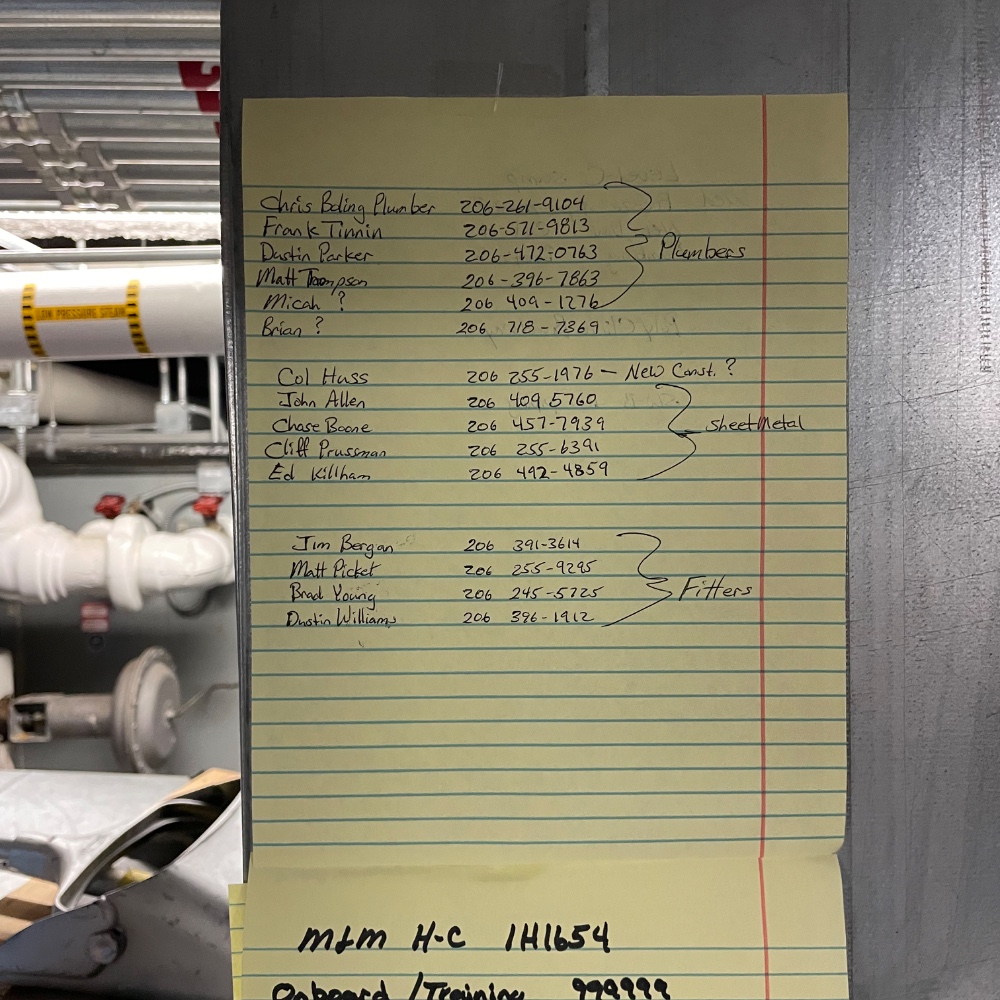 LOW PRESSURE STEAM
Chris Boling Plumber 206-261-9104
Frank Tinnin 206-571-9813
Dustin Parker 206-472-0763 Plumbers
Matt Thompson 206-396-7863
Micah ? 206 409-1276
Brian ? 206 718-7369
Col Huss 206 255-1976 — New Const. ?
John Allen 206 409 5760
Chase Boone 206 457-7939 sheetMetal
Cliff Prussman 206 255-6391
Ed Killham 206 492-4859
Jim Bergan 206 391-3614
Matt Picket 206 255-9295
Brad Young 206 245-5725 Fitters
Dustin Williams 206 396-1912
M&M H-C 1H1654
Onboard /Training 999999